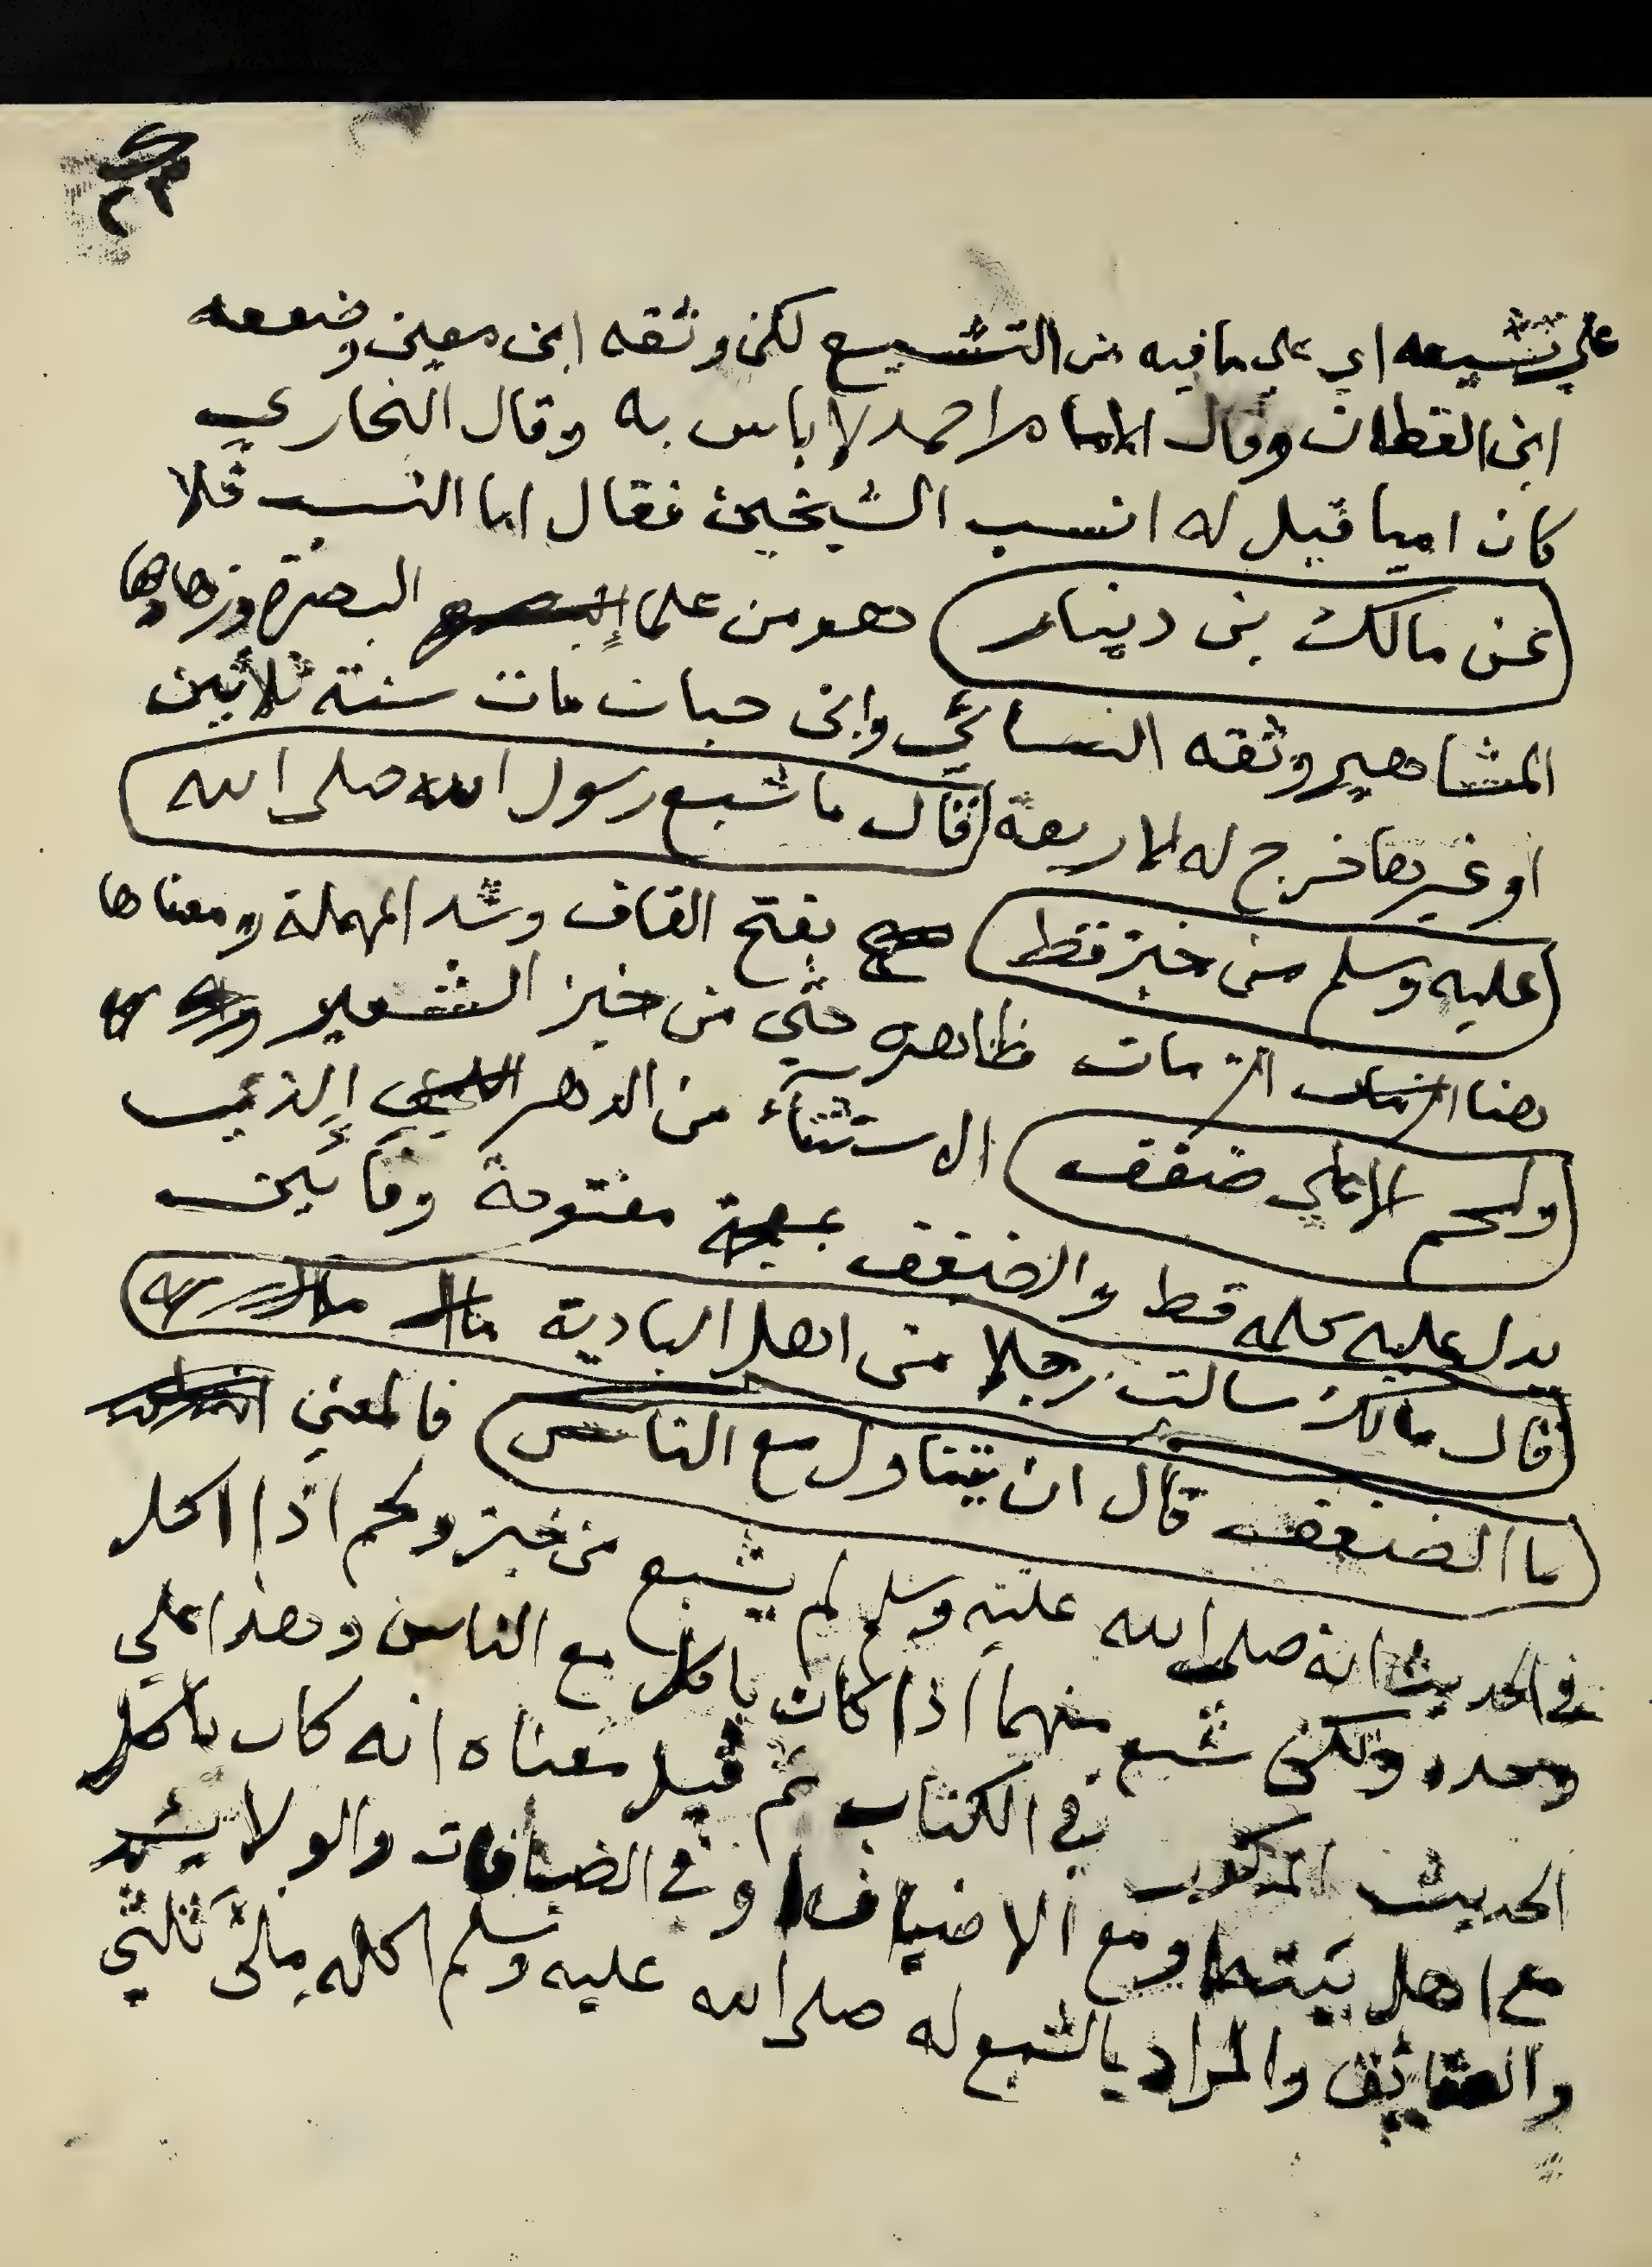 علي تشيعه اي علي ما فيه من التشيع لكن وثقه ابن معين وضعفه
ابن القطان وقال الامام احمد لا باس به وقال البخاري
كان اميا قيل له انسب الشيخين فقال اما النسب فلا
عن مالك بن دينار وهو من علما البصرة وزهادها
المشاهير وثقه النسائي وابن حبان مات سنة ثلاثين
او غيرها خرج له الاربعة قال ما شبع رسول الله صلى الله
عليه وسلم من خبز قط بفتح القاف وشد المهملة ومعناها
هنا الزمان فظاهره حتي من خبز الشعير
ولا لحم الا علي ضفف الاستثناء من الدهر الذي
يدل عليه كلمه قط والضفف بمعجمة مفتوحة وفائين
قال مالك سالت رجلا من اهل البادية
ما الضفف قال ان يتناول مع الناس فالمعني
في الحديث انه صلى الله عليه وسلم لم يشبع من خبز ولحم اذا اكل
وحده ولكن شبع منهما اذا كان ياكل مع الناس وهذا علي
الحديث المذكور في الكتاب ثم قيل معناه انه كان ياكل
مع اهل بيته او مع الاضياف او في الضيافات والولايم
والمراد بالشبع له صلى الله عليه وسلم اكله ملئ ثلثي